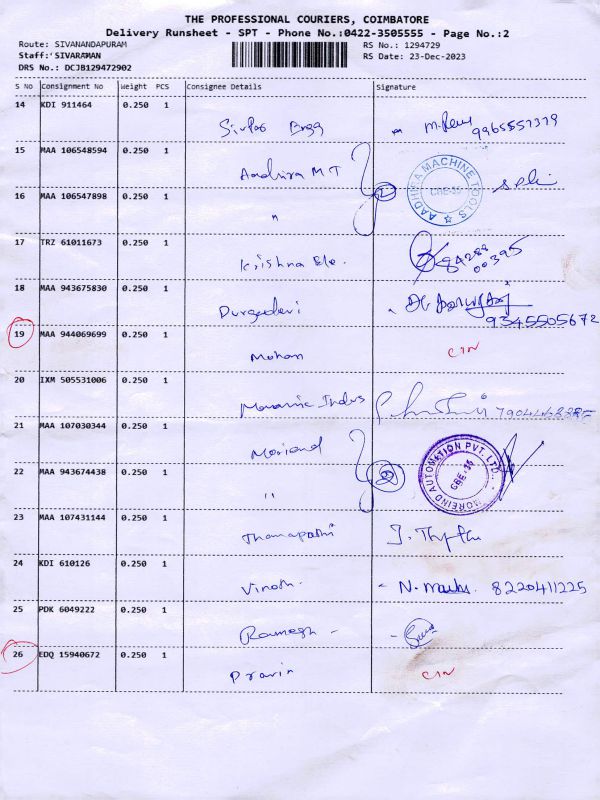 THE PROFESSIONAL COURIERS, COIMBATORE
Delivery Runsheet - SPT - Phone No.:0422-3505555 - Page No.:2
Route: SIVANANDAPURAM
RS No.: 1294729
Staff:'SIVARAMAN
RS Date: 23-Dec-2023
DRS No.: DCJB129472902
S No Consignment No Weight PCS Consignee Details Signature
14 KDI 911464 0.250 1
9965557379
15 MAA 106548594 0.250 1 Aadhira M T
AADHIRA MACHINE TOOLS CBE-35
16 MAA 106547898 0.250 1 "
17 TRZ 61011673 0.250 1 Krishna Ele.
84288
00395
18 MAA 943675830 0.250 1 Durgadevi
9345505672
19 MAA 944069699 0.250 1 Mohan CIN
20 IXM 505531006 0.250 1
21 MAA 107030344 0.250 1
MOREIND AUTOMATION PVT. LTD. CBE-35
22 MAA 943674438 0.250 1 "
23 MAA 107431144 0.250 1 Thanapathi
24 KDI 610126 0.250 1 Vinoth. 8220411225
25 PDK 6049222 0.250 1 Ramesh -
26 EDQ 15940672 0.250 1 Pravin CIN